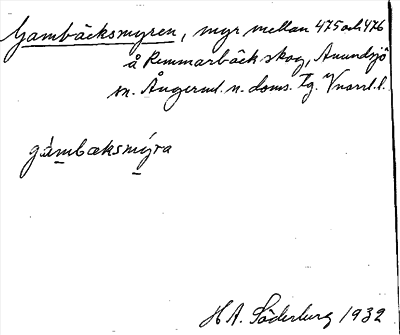 Gambäcksmyren, myr mellan 475 och 476
å Remmarbäck skog, Anundsjö
sn. Ångerml. n. doms. Tg. Vnorrl. l.
gàmbæksmýra
H A. Söderberg 1932